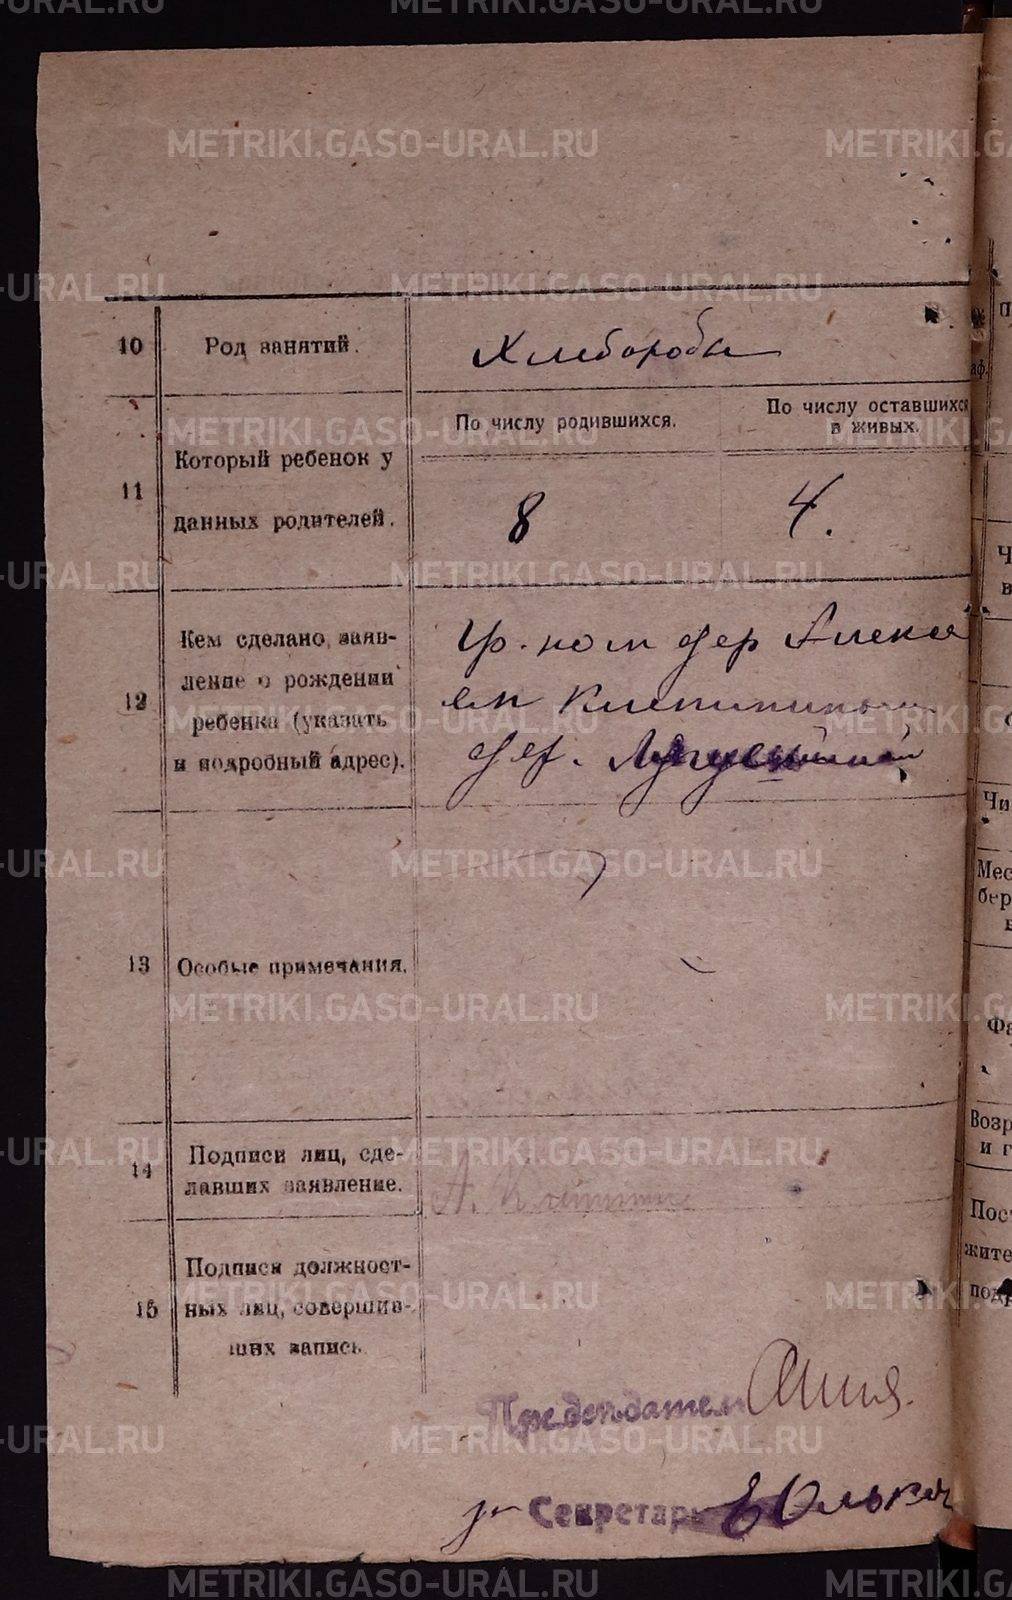 METRIKI.GASO-URAL.RU
10 Род занятий. Хлебороб
11 Который ребенок у данных родителей.
По числу родившихся.
По числу оставшихся
в живых.
8
4.
12 Кем сделано заяв-
ление о рождении
ребенка (указать
и подробный адрес).
Гр.
дер Алексе
ем Клепининым
дер.
13 Особые примечания.
14 Подписи лиц, сде-
лавших заявление.
А. Клепинин
15 Подписи должност-
ных лиц, совершив-
ших запись.
Председатель
за Секретарь